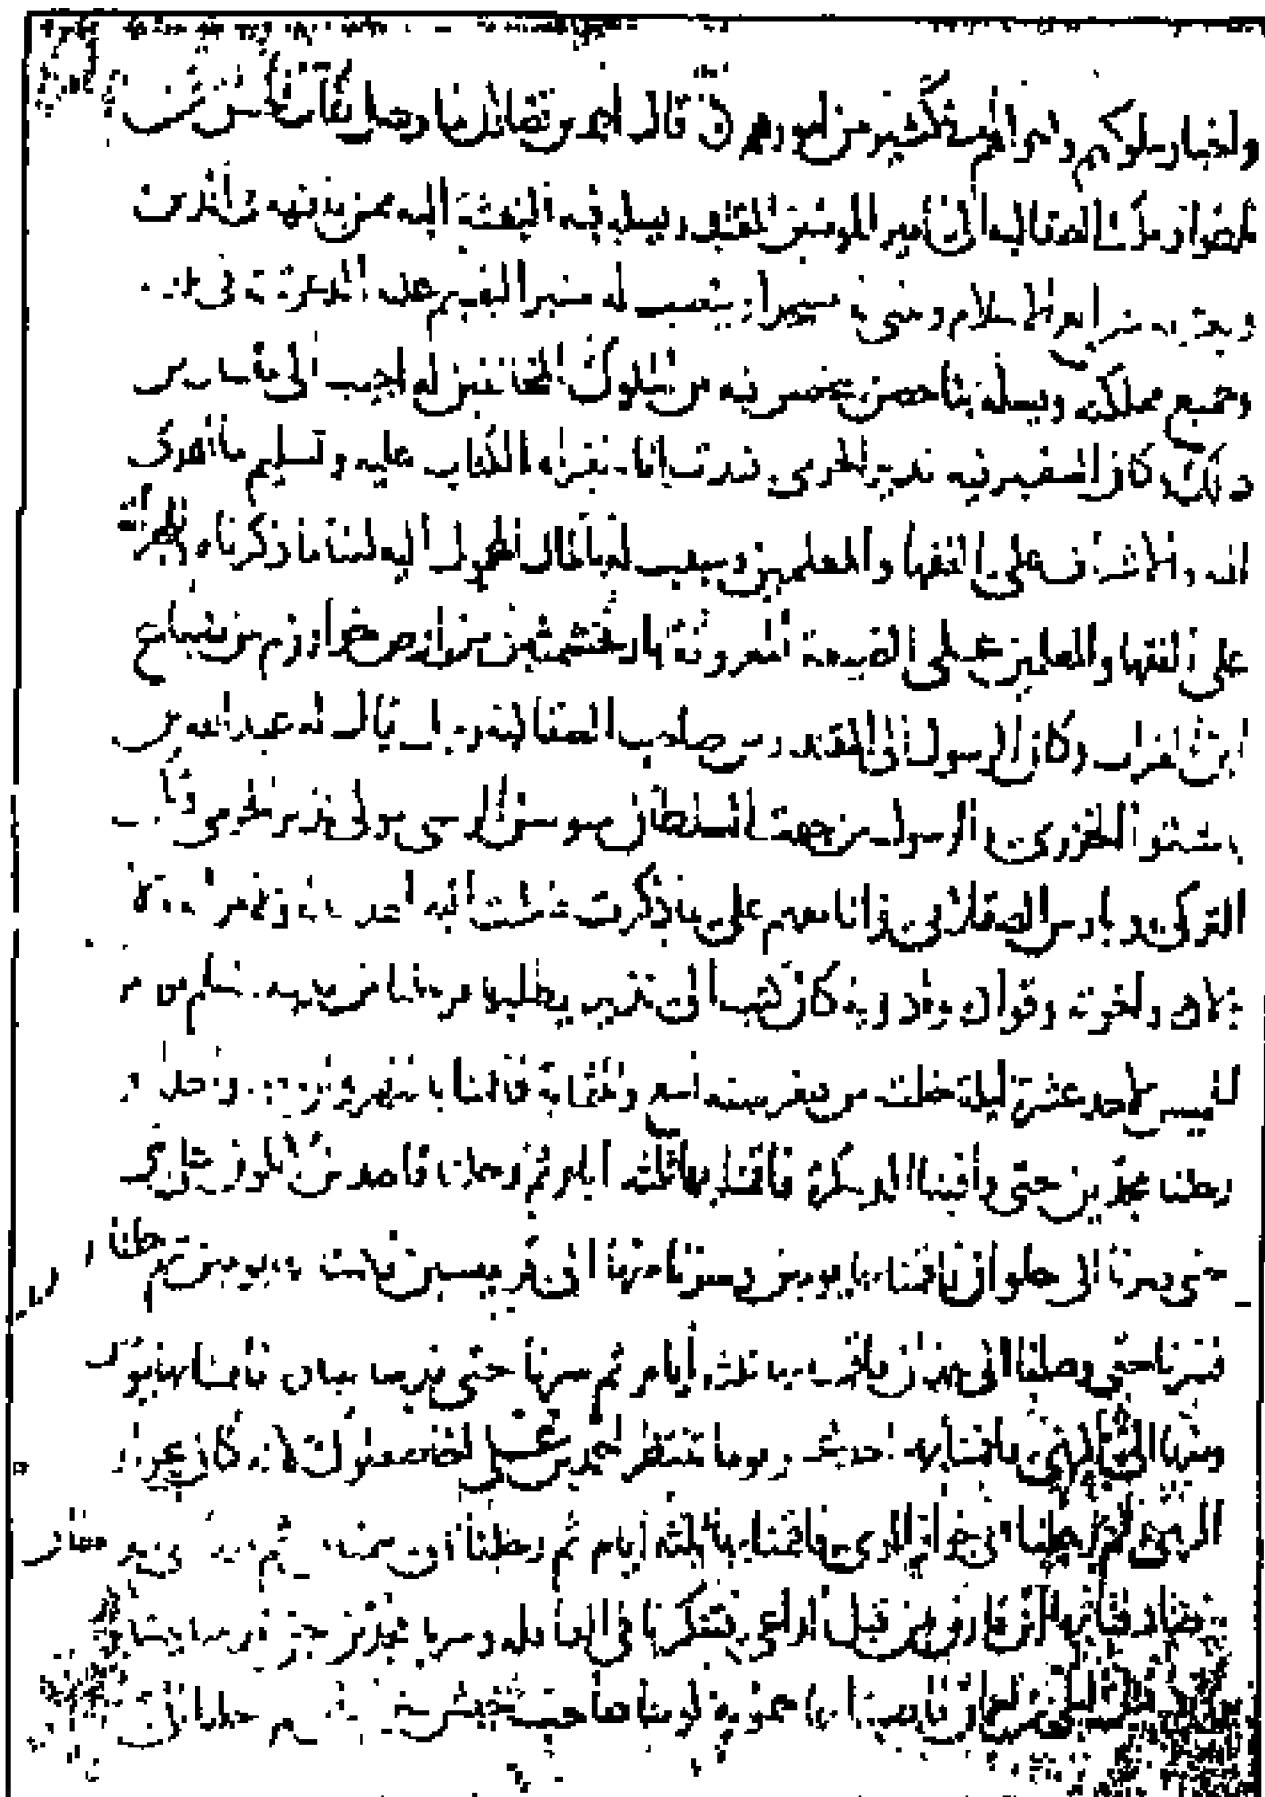 واخبار ملوكهم واحوالهم في كثير من امورهم قال احمد بن فضلان لما وصل كتاب الحسن بن
يلطوار ملك الصقالبة الى امير المومنين المقتدر يسله فيه البعثة اليه ممن يفقهه في الدين
ويعرفه شرايع الاسلام ويبني له مسجدا وينصب له منبرا ليقيم عليه الدعوة له في بلده
وجميع مملكته ويسله بنا حصن يتحصن فيه من الملوك المخالفين له اجيب الى ما سال من
ذلك وكان السفير فيه نذير الحرمي فندبت انا لقراه الكتاب عليه وتسليم ما اهدي
اليه والاشراف على الفقها والمعلمين وسبب له بالمال المحمول اليه لبنا ما ذكرناه وللجراية
على الفقها والمعلمين على الضيعة المعروفة بارثخشمثين من ارض خوارزم من ضياع
ابن الفرات وكان الرسول الى المقتدر من صاحب الصقالبة رجل يقال له عبد الله بن
باشتو الخزري والرسول من جهة السلطان سوسن الرسي مولى نذير الحرمي وتكين
التركي وبارس الصقلابي وانا معهم على ما ذكرت فسلمت اليه الهدايا له ولامراته ولا
ولاده ولاخوته وقواده وادوية كان كتب الى نذير يطلبها فرحلنا من مدينة السلم يوم
الخميس لاحد عشرة ليلة خلت من صفر سنه تسع وثلثماية فاقمنا بالنهروان يوما واحدا و
رحلنا مجدين حتى وافينا الدسكرة فاقمنا بها ثلثه ايام ثم رحلنا قاصدين لا نلوي على شي
حتى صرنا الى حلوان فاقمنا بها يومين وسرنا منها الى قرميسين فاقمنا بها يومين ثم رحلنا
فسرنا حتى وصلنا الى همذان فاقمنا بها ثلثه ايام ثم سرنا حتى قدمنا ساوه فاقمنا بها يومين
ومنها الى الري فاقمنا بها احد عشر يوما ننتظر احمد بن علي اخا صعلوك لانه كان بخوار
الري ثم رحلنا الى خوار الري فاقمنا بها ثلثه ايام ثم رحلنا الى سمنان ثم منها الى الدامغان
صادفنا بها ابن قارن من قبل الداعي فتنكرنا في القافله وسرنا مجدين حتى قدمنا نيسابور
وقد قتل ليلى بن نعمان فاصبنا بها حمويه كوسا صاحب جيش خراسان ثم رحلنا الى